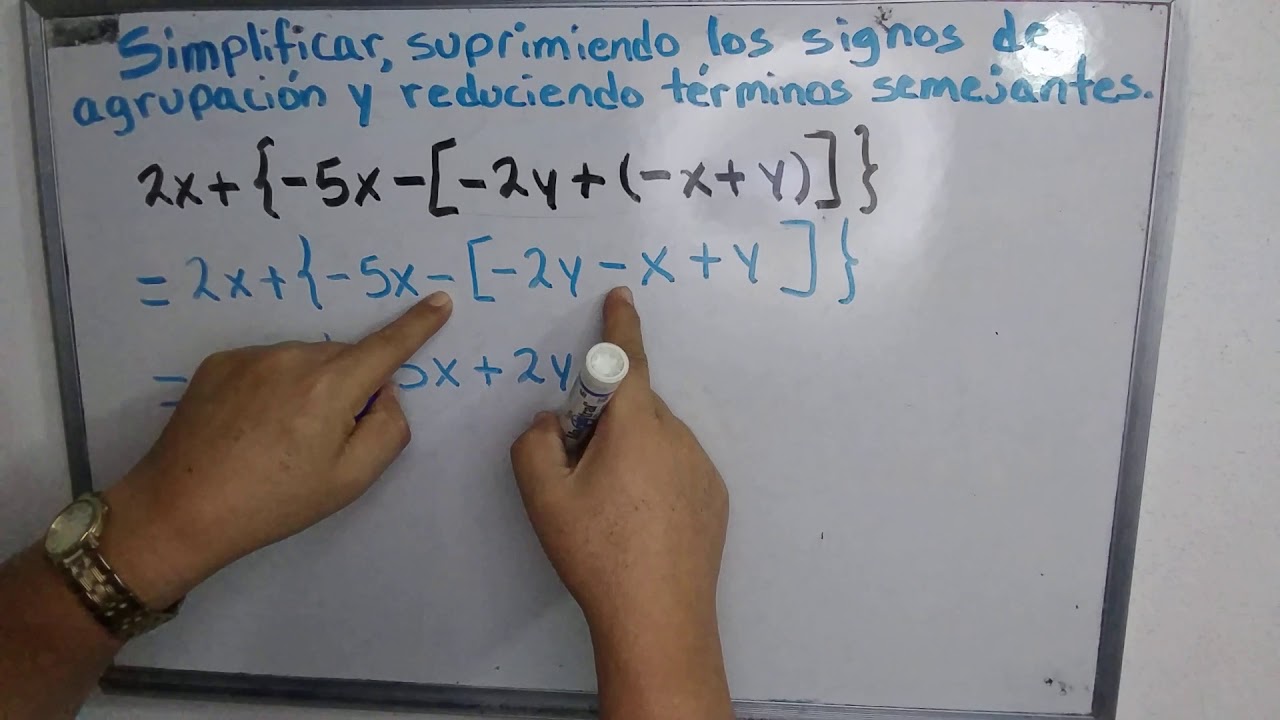 Simplificar, suprimiendo los signos de
agrupación y reduciendo términos semejantes.
2x+{-5x-[-2y+(-x+y)]}
=2x+{-5x-[-2y-x+y]}
= 5x+2y